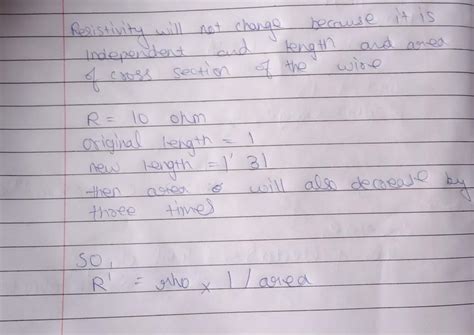 Resistivity will not change because it is
independent and length and area
of cross section of the wire
R = 10 ohm
original length = l
new length = l' 3l
then area will also decrease by
three times
SO,
R' = rho x l / area